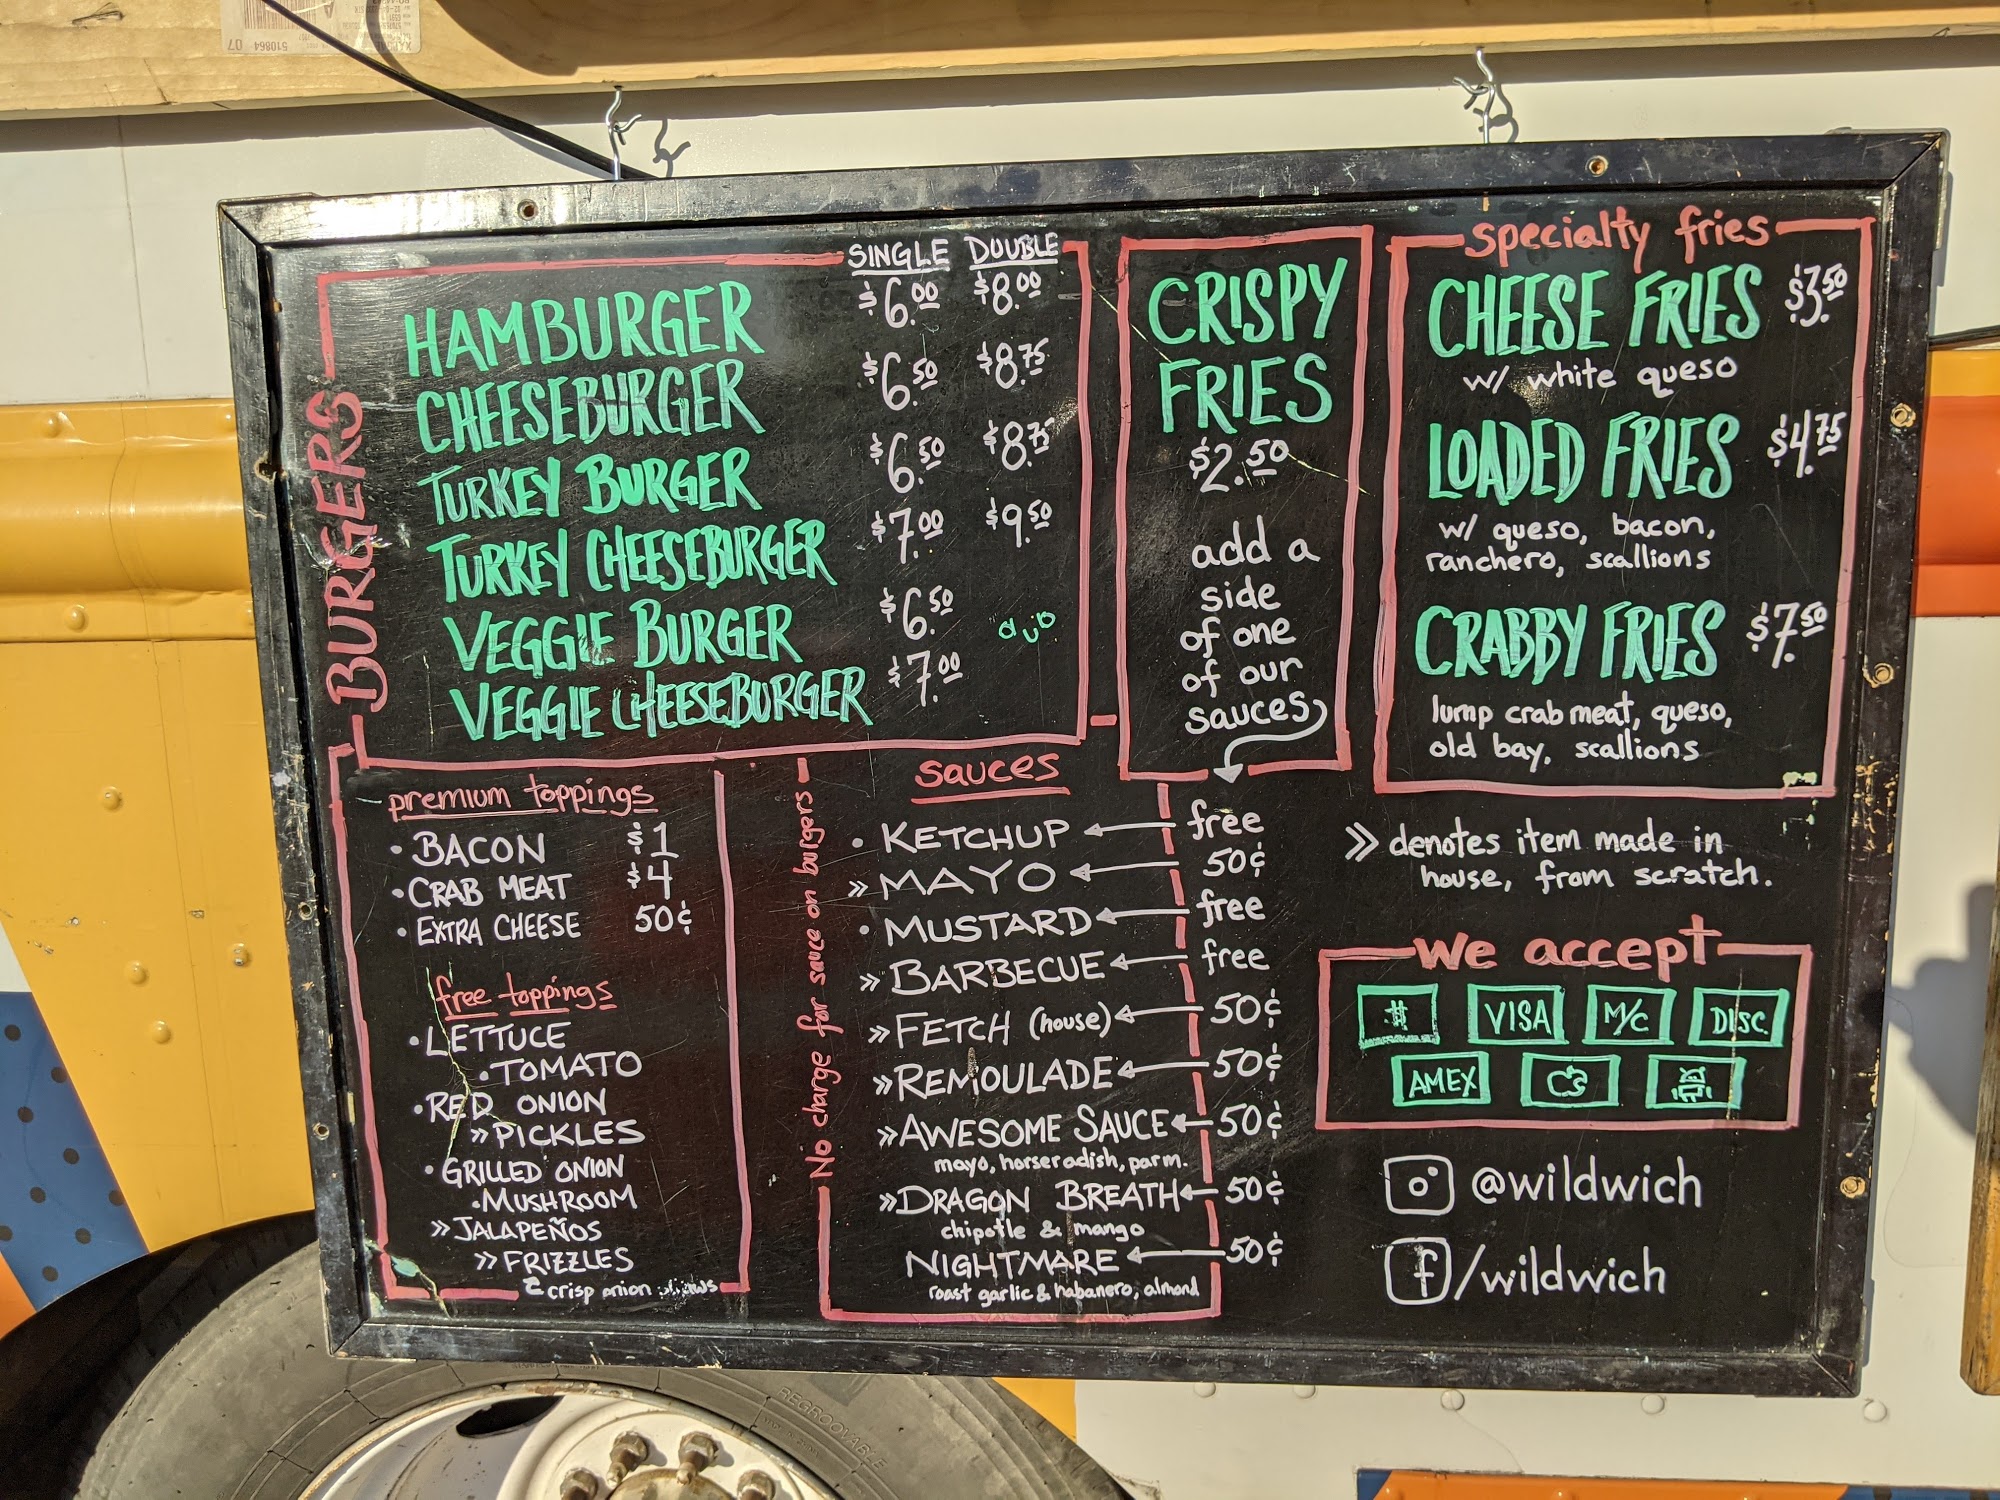 SINGLE DOUBLE
BURGERS
HAMBURGER $6.00 $8.00
CHEESEBURGER $6.50 $8.75
TURKEY BURGER $6.50 $8.75
TURKEY CHEESEBURGER $7.00 $9.50
VEGGIE BURGER $6.50
VEGGIE CHEESEBURGER $7.00
CRISPY
FRIES
$2.50
add a
side
of one
of our
sauces
specialty fries
CHEESE FRIES $3.50
w/ white queso
LOADED FRIES $4.75
w/ queso, bacon,
ranchero, scallions
CRABBY FRIES $7.50
lump crab meat, queso,
old bay, scallions
premium toppings
• BACON $1
• CRAB MEAT $4
• EXTRA CHEESE 50¢
free toppings
• LETTUCE
• TOMATO
• RED ONION
» PICKLES
• GRILLED ONION
• MUSHROOM
» JALAPEÑOS
» FRIZZLES
crisp onion
No charge for sauce on burgers
sauces
• KETCHUP free
» MAYO 50¢
• MUSTARD free
» BARBECUE free
» FETCH (house) 50¢
» REMOULADE 50¢
» AWESOME SAUCE 50¢
mayo, horseradish, parm.
» DRAGON BREATH 50¢
chipotle & mango
NIGHTMARE 50¢
roast garlic & habanero, almond
» denotes item made in
house, from scratch.
we accept
VISA M/C DISC
AMEX
@wildwich
f/wildwich
REGROOVABLE
510864 07